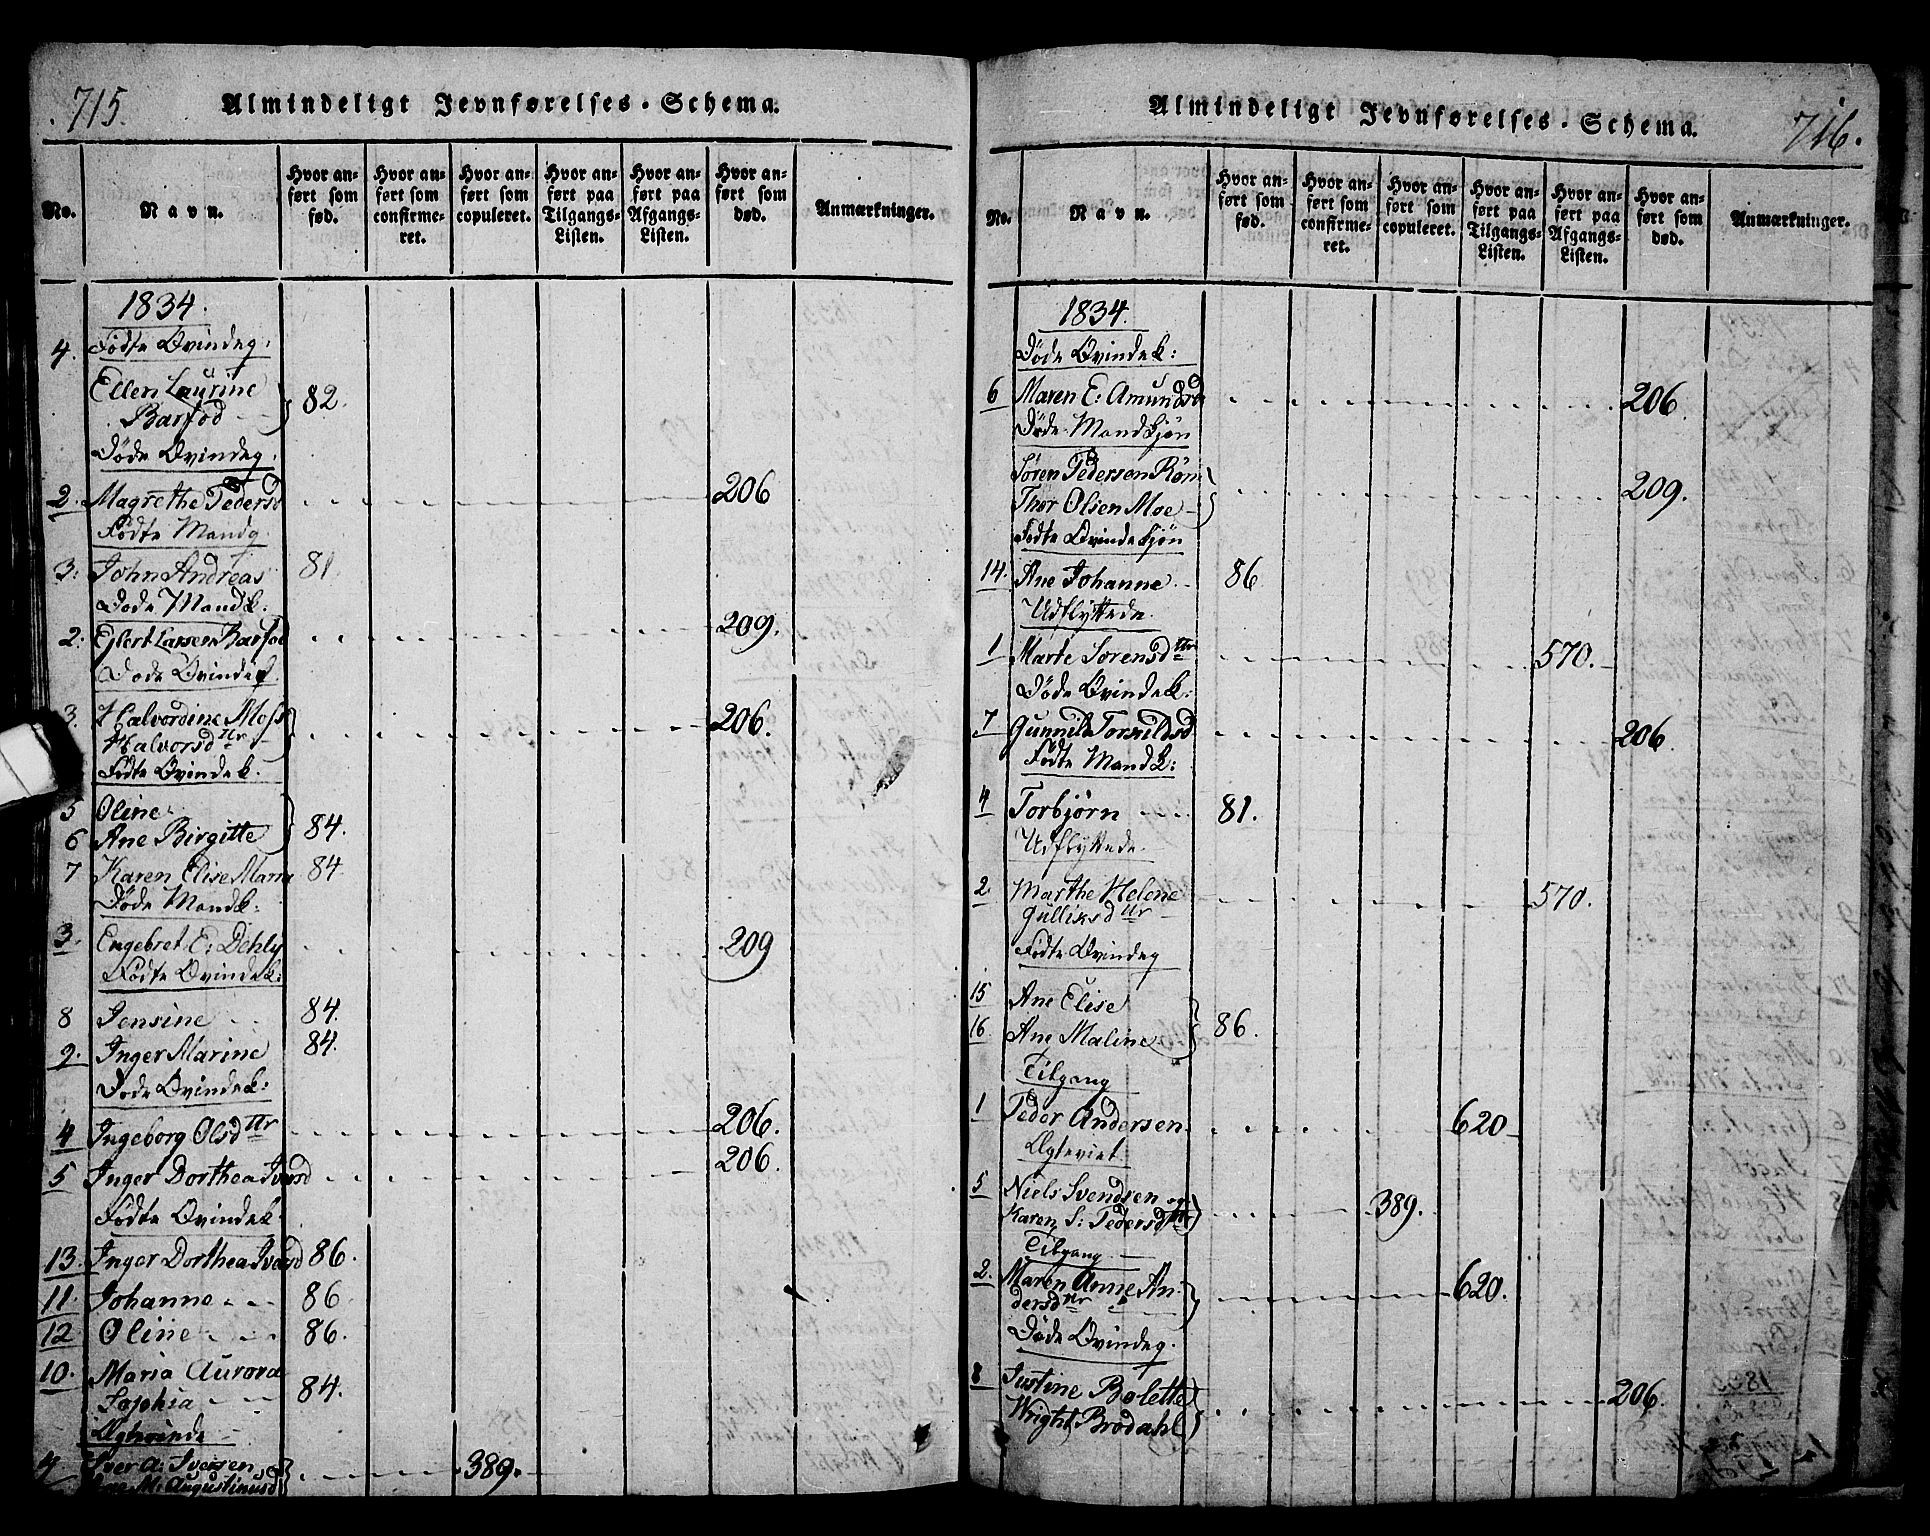 715.
Almindeligt Jevnførelses-Schema.
No.
Navn.
Hvor anført som fød.
Hvor anført som confirmeret.
Hvor anført som copuleret.
Hvor anført paa Tilgangs-Listen.
Hvor anført paa Afgangs-Listen.
Hvor anført som død.
Anmærkninger.
1834.
4. Fødte Qvindeg.
Ellen Laurine
Barfod 82.
Døde Qvindeg.
2. Magrethe Peders 206
Fødte Mandg.
3. John Andreas 81
Døde Mandk.
2. Eylert Larsen Barfod 209.
Døde Qvindek.
3. Halvordine Moss
Halvorsdttr 206.
Fødte Qvindek.
5 Oline
6 Ane Birgitte 84.
7 Karen Elise Maria 84
Døde Mandk.
3. Engebret E: Dehly 209
Fødte Qvindek:
8 Jensine 84.
9. Inger Marine 84.
Døde Qvindek:
4 Ingeborg Olsdttr 206.
5 Inger Dorthea Ivarsd 206.
Fødte Qvindek.
13. Inger Dorthea Ivarsd 86.
11. Johanne 86.
12 Oline 86.
10. Maria Aurora
Sophia 84.
Ægteviede
4 Iver A: Iversen
Ane M. Augustinusd 389.
Almindeligt Jevnførelses-Schema.
716.
No.
Navn.
Hvor anført som fød.
Hvor anført som confirmeret.
Hvor anført som copuleret.
Hvor anført paa Tilgangs-Listen.
Hvor anført paa Afgangs-Listen.
Hvor anført som død.
Anmærkninger.
1834.
Døde Qvindek:
6 Maren E: Amunds 206.
Døde Mandkjøn
Søren Pedersen Røn
Thor Olsen Moe 209.
Fødte Qvindekjøn
14. Ane Johanne 86.
Udflyttede.
1 Marte Sørensdttr 570.
Døde Qvindek:
7 Gunnild Torkildsd 206.
Fødte Mandk:
4 Torbjørn 81.
Udflyttede.
2 Marthe Helene
Gulliksdttr 570.
Fødte Qvindeg
15 Ane Elise
16 Ane Maline 86.
Tilgang
1 Peder Andersen 620
Ægteviet.
5 Niels Svendsen og
Karen S: Pedersdttr 389.
Tilgang
2. Maren Anne An-
dersdttr 620.
Døde Qvindeg.
8 Justine Bolette
Wright Brodahl 206.